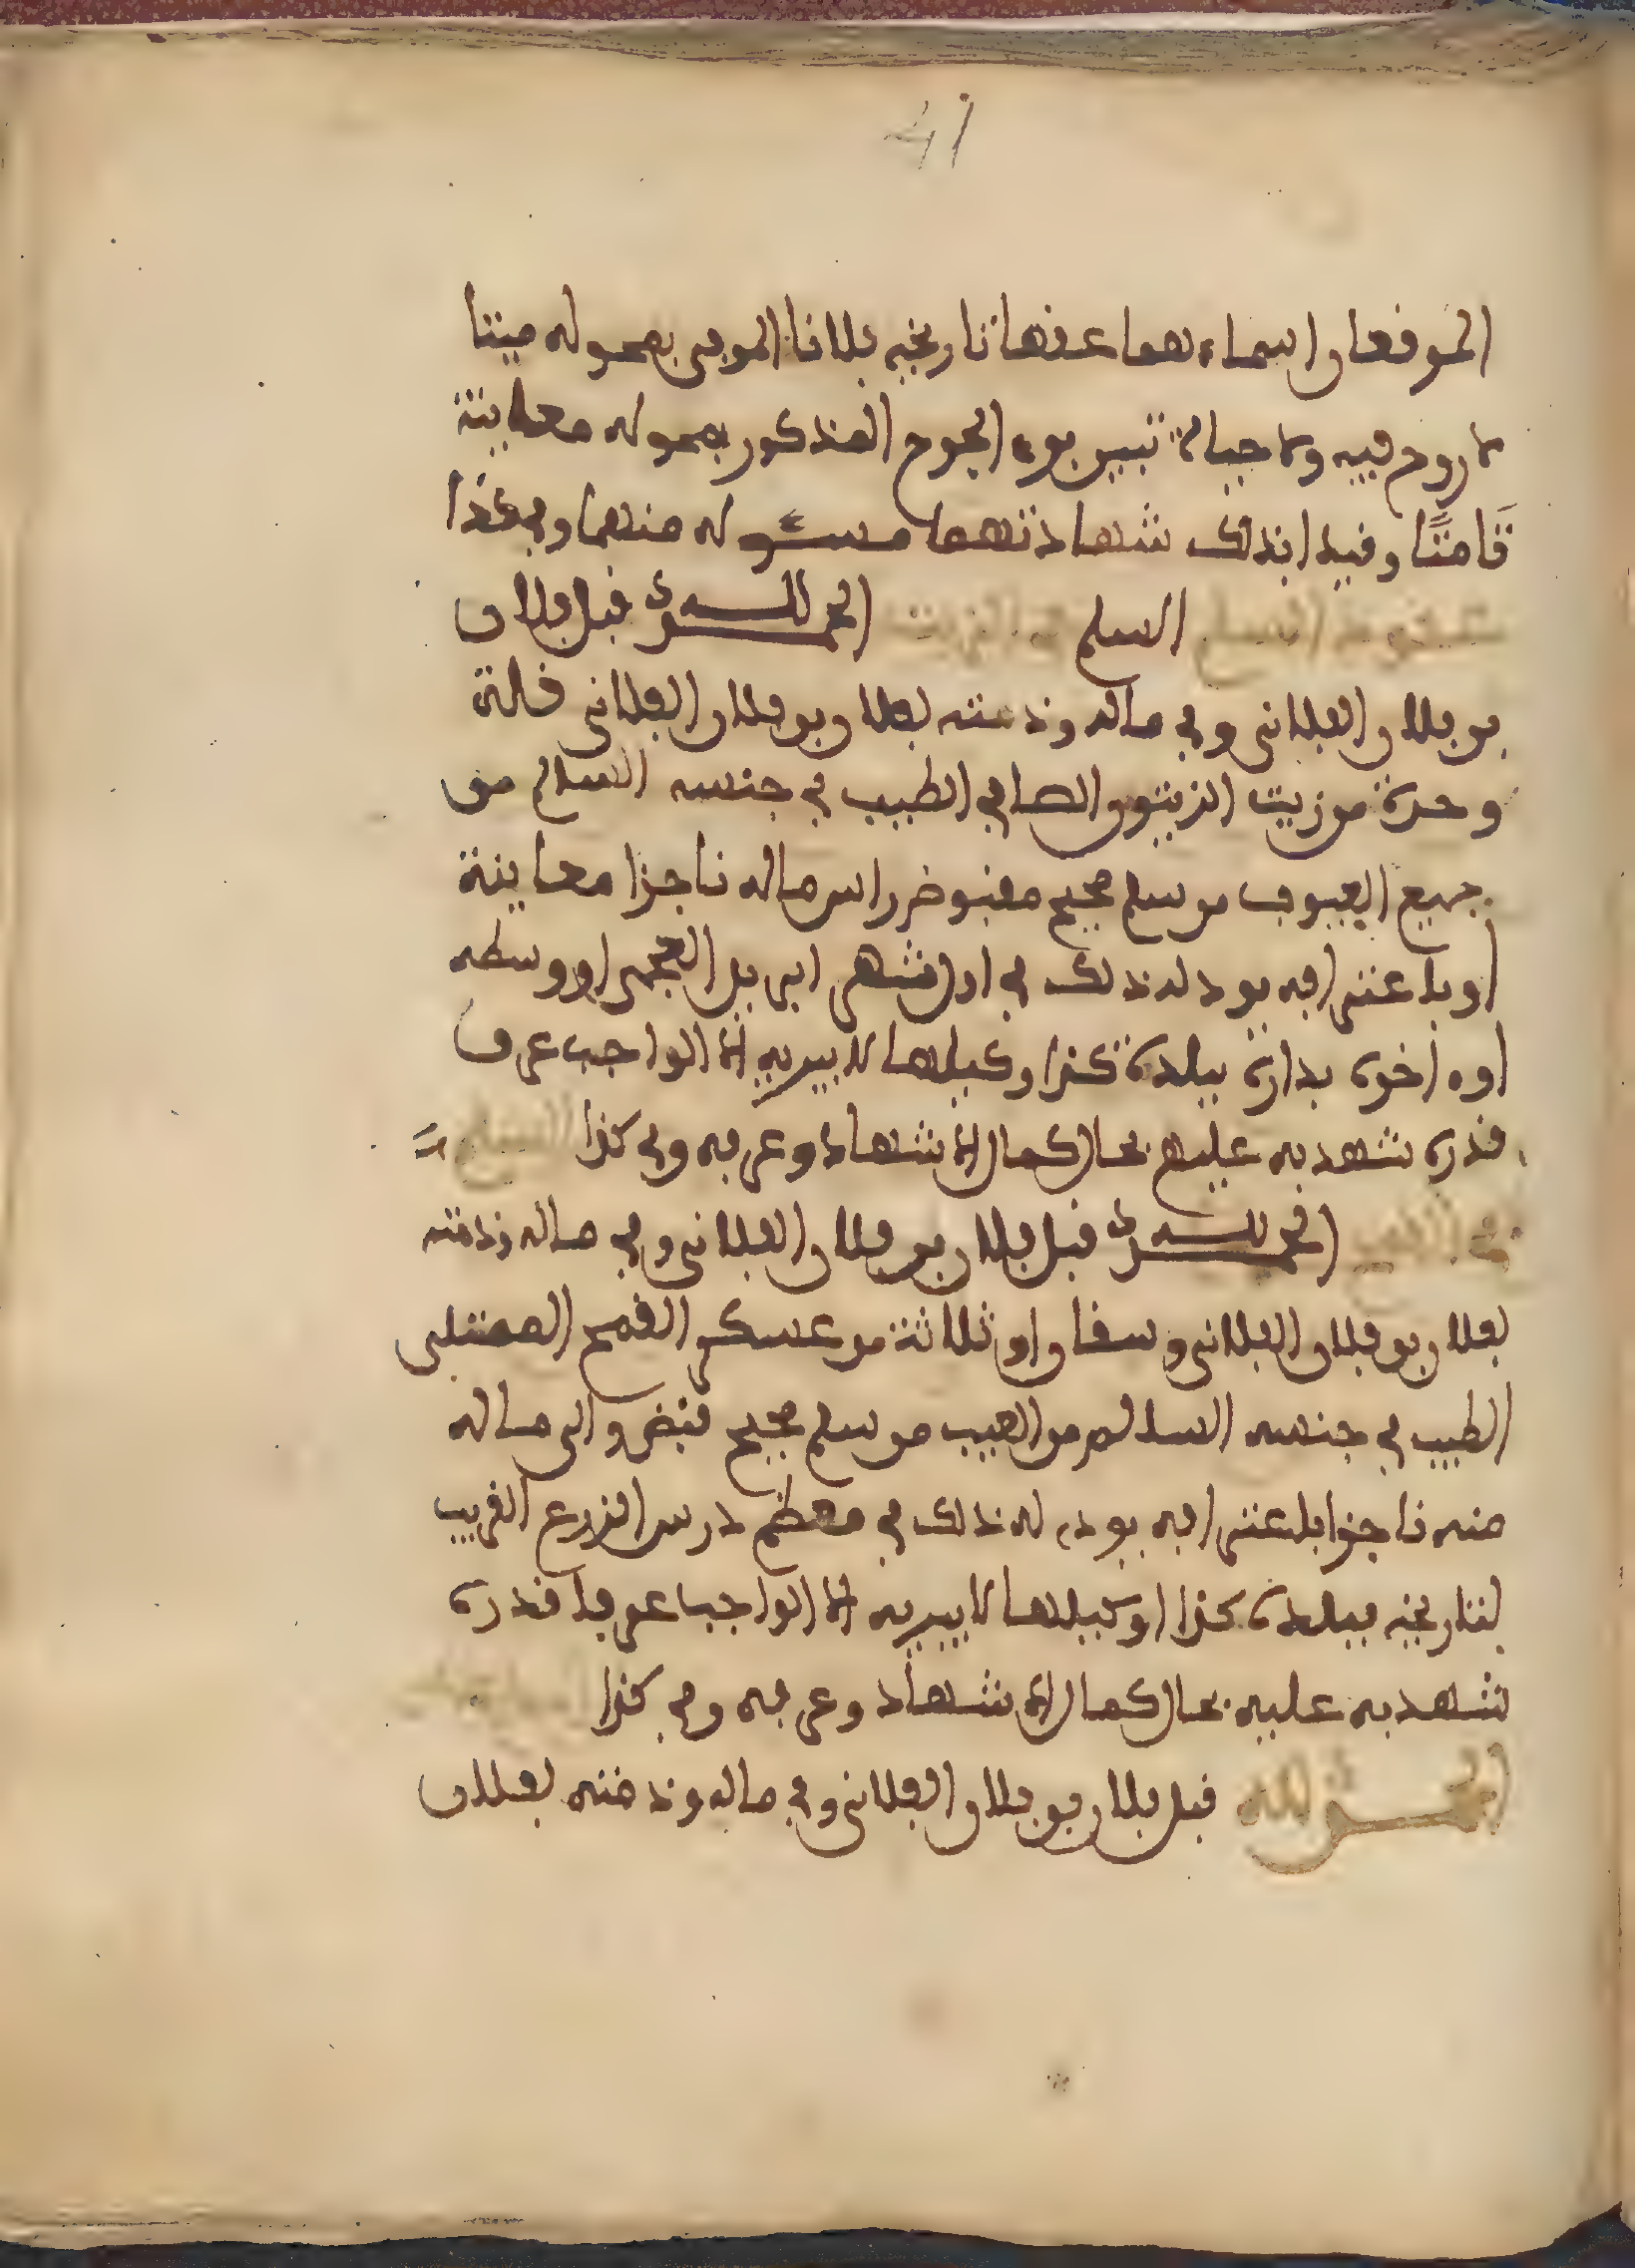 41
الموقعان اسماءهما عنها تاريخه فلانا الموجى بمحوله ميتا
لا روح فيه ولا حياة تبين بوه الجوح المذكور بمحوله معاينة
تامتا وفيدا بذلك شهادتهما مسئوله منهما وفي كذا
السلم الحمد لله قبل فلان
بن فلان الفلاني وفي ماله وذمته لفلان بن فلان الفلاني قلة
وحدة من زيت الزيتون الصافي الطيب في جنسه السالم من
جميع العيوب من سلم صحيح مقبوض راس ماله ناجزا معاينة
او باعترافه يود له ذلك في اول شهر ابريل العجمي او وسطه
اوه اخره بداره ببلدة كذا وكيلها لا يبريه الا الواجب عرف
قدره شهد به عليهم بحال كمال الاشهاد وعرفه وفي كذا
الحمد لله قبل فلان بن فلان الفلاني وفي ماله وذمته
لفلان بن فلان الفلاني وسقان او ثلاثة من عسكر القمح الممتلى
الطيب في جنسه السالم من العيب من سلم صحيح قبض راس ماله
منه ناجزا باعترافه يوده له ذلك في معظم درس الزرع القريب
لتاريخه ببلدة كذا او كيلها لا يبريه الا الواجب عرفا قدره
شهد به عليه بحال كمال الاشهاد وعرفه وفي كذا
الحمد لله قبل فلان بن فلان الفلاني وفي ماله وذمته لفلان